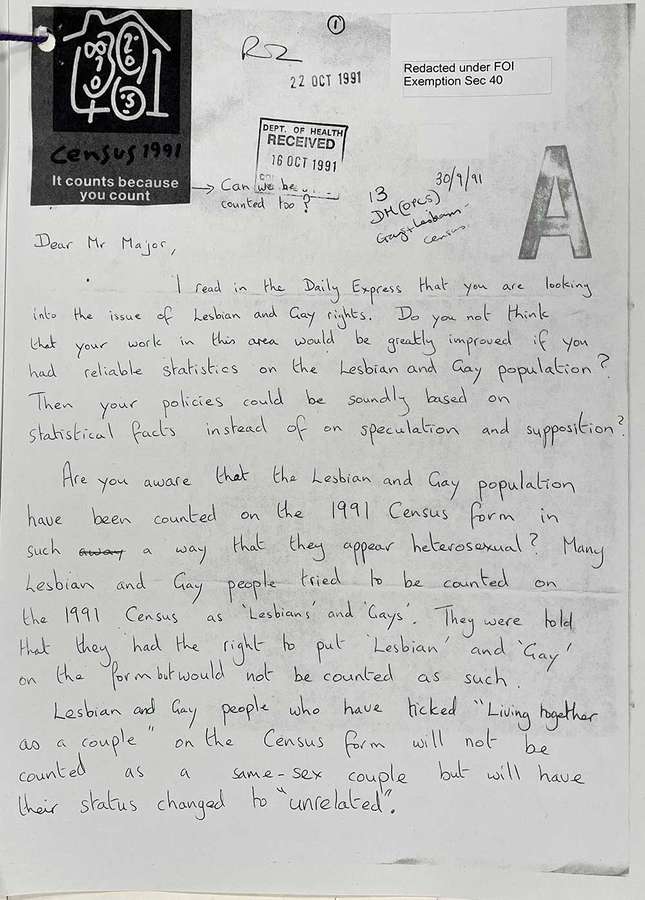 1
22 OCT 1991
Redacted under FOI
Exemption Sec 40
Census 1991
It counts because
you count
DEPT. OF HEALTH
RECEIVED
16 OCT 1991
→ Can we be
counted too?
30/9/91
13
DH (OPCS)
Gay + Lesbian
census
A
Dear Mr Major,
I read in the Daily Express that you are looking
into the issue of Lesbian and Gay rights. Do you not think
that your work in this area would be greatly improved if you
had reliable statistics on the Lesbian and Gay population?
Then your policies could be soundly based on
statistical facts instead of on speculation and supposition?
Are you aware that the Lesbian and Gay population
have been counted on the 1991 Census form in
such away a way that they appear heterosexual? Many
Lesbian and Gay people tried to be counted on
the 1991 Census as 'Lesbians' and 'Gays'. They were told
that they had the right to put 'Lesbian' and 'Gay'
on the form but would not be counted as such.
Lesbian and Gay people who have ticked "Living together
as a couple" on the Census form will not be
counted as a same-sex couple but will have
their status changed to "unrelated".